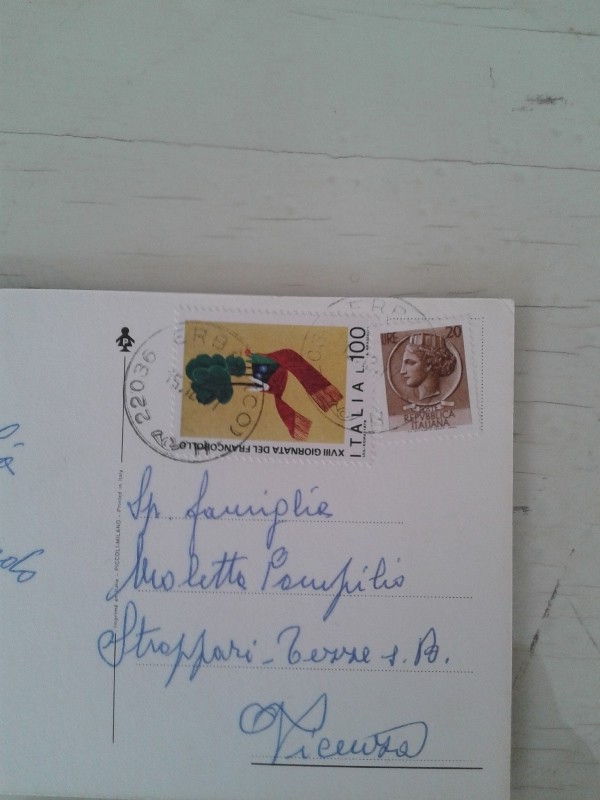 22036 ERBA (CO)
ITALIA L.100
XVIII GIORNATA DEL FRANCOBOLLO
LIRE 20
POSTE
REPUBBLICA
ITALIANA
Sp. famiglia
Pompilio
Strappari - Tezze s. B.
Vicenza
PICCOLI-MILANO - Printed in Italy